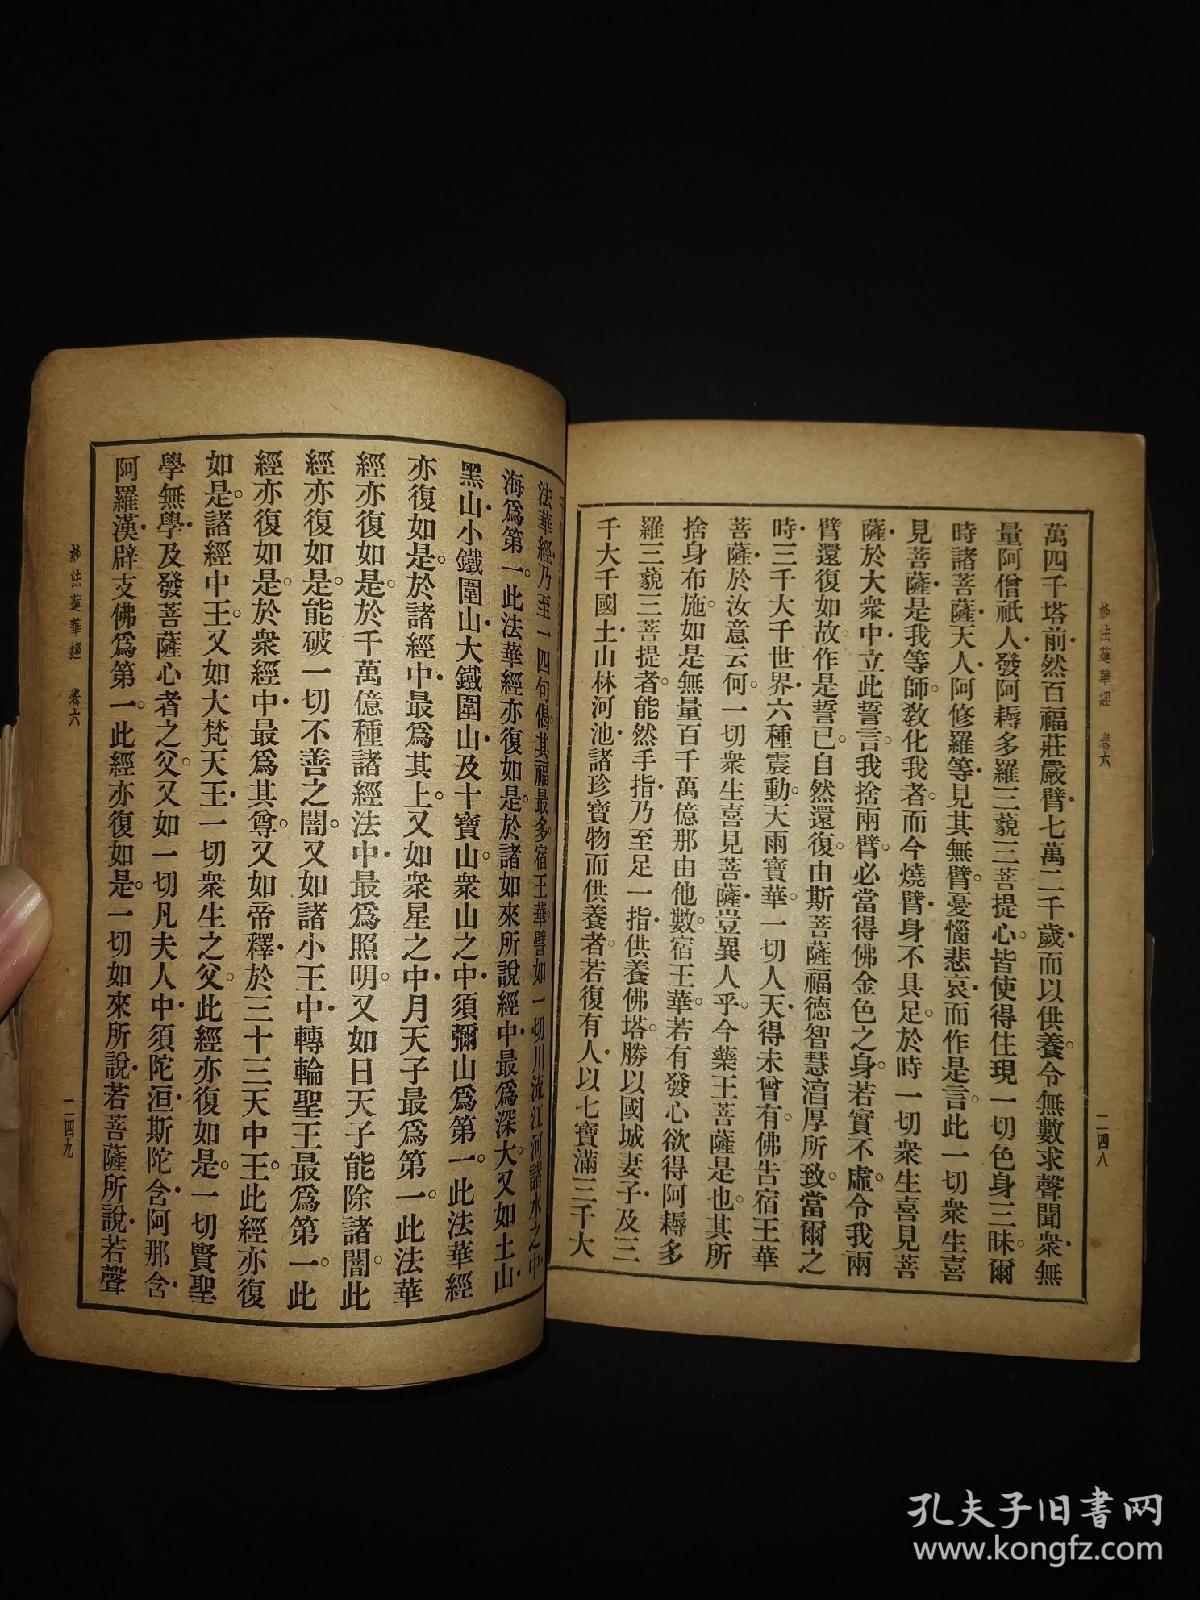 妙法蓮華經　卷六　二四八
萬四千塔前・然百福莊嚴臂・七萬二千歲・而以供養。令無數求聲聞衆・無
量阿僧祇人・發阿耨多羅三藐三菩提心。皆使得住現一切色身三昧。爾
時諸菩薩・天人・阿修羅等・見其無臂・憂惱悲哀・而作是言。此一切衆生喜
見菩薩・是我等師・教化我者。而今燒臂・身不具足。於時一切衆生喜見菩
薩・於大衆中・立此誓言。我捨兩臂・必當得佛金色之身。若實不虛・令我兩
臂還復如故。作是誓已・自然還復。由斯菩薩福德智慧湻厚所致。當爾之
時・三千大千世界・六種震動・天雨寶華・一切人天・得未曾有。佛告宿王華
菩薩・於汝意云何。一切衆生喜見菩薩・豈異人乎・今藥王菩薩是也。其所
捨身布施・如是無量百千萬億那由他數。宿王華・若有發心欲得阿耨多
羅三藐三菩提者・能然手指・乃至足一指・供養佛塔。勝以國城妻子・及三
千大千國土・山林河池・諸珍寶物而供養者。若復有人・以七寶滿三千大
法華經・乃至一四句偈・其福最多。宿王華・譬如一切川流江河・諸水之中・
海爲第一。此法華經・亦復如是。於諸如來所說經中・最爲深大。又如土山・
黑山・小鐵圍山・大鐵圍山・及十寶山。衆山之中・須彌山爲第一。此法華經・
亦復如是。於諸經中・最爲其上。又如衆星之中・月天子最爲第一。此法華
經・亦復如是。於千萬億種諸經法中・最爲照明。又如日天子・能除諸闇。此
經亦復如是。能破一切不善之闇。又如諸小王中・轉輪聖王最爲第一。此
經亦復如是。於衆經中・最爲其尊。又如帝釋・於三十三天中王。此經亦復
如是。諸經中王。又如大梵天王・一切衆生之父。此經亦復如是。一切賢聖
學無學・及發菩薩心者之父。又如一切凡夫人中・須陀洹・斯陀含・阿那含・
阿羅漢・辟支佛・爲第一。此經亦復如是。一切如來所說・若菩薩所說・若聲
妙法蓮華經　卷六　二四九
孔夫子旧書网
www.kongfz.com